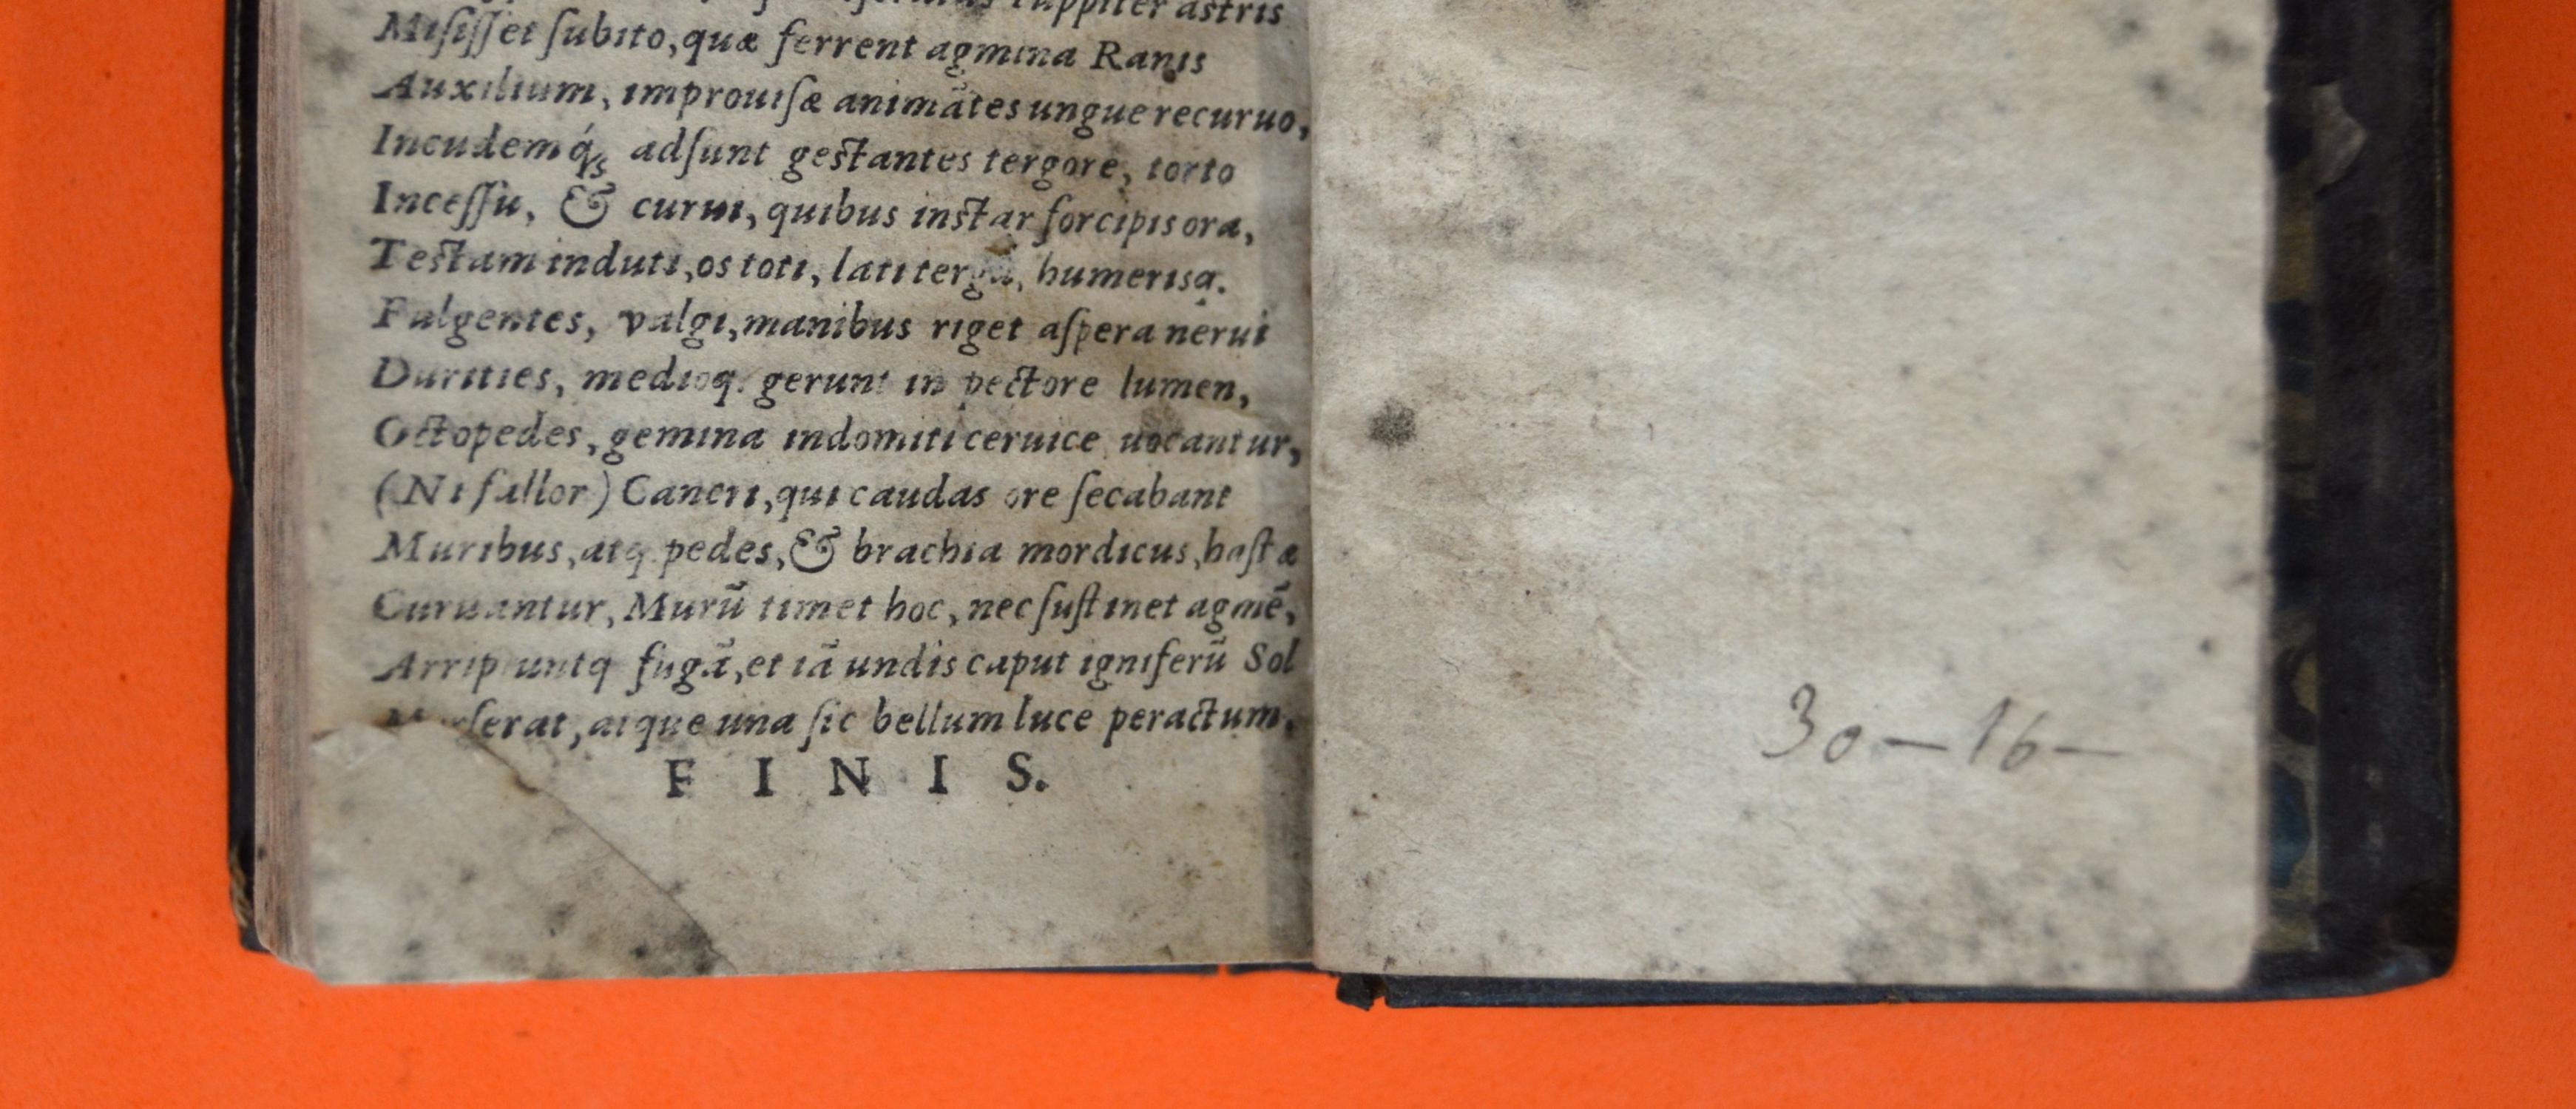 iuppiter astris
Misisset subito, quæ ferrent agmina Ranis
Auxilium, improuisæ animãtes ungue recuruo,
Incudemq́ꝫ adsunt gestantes tergore, torto
Incessu, & curui, quibus instar forcipis ora,
Testam induti, os toti, lati terga, humerisq.
Fulgentes, valgi, manibus riget aspera nerui
Durities, medioq. gerunt in pectore lumen,
Octopedes, gemina indomiti ceruice uocantur,
(Ni fallor) Cancri, qui caudas ore secabant
Muribus, atq. pedes, & brachia mordicus, hastæ
Curuantur, Murũ timet hoc, nec sustinet agmẽ,
Arripiuntq fugã, et iã undis caput igniferũ Sol
Merserat, atque una sic bellum luce peractum.
F I N I S.
30—16—